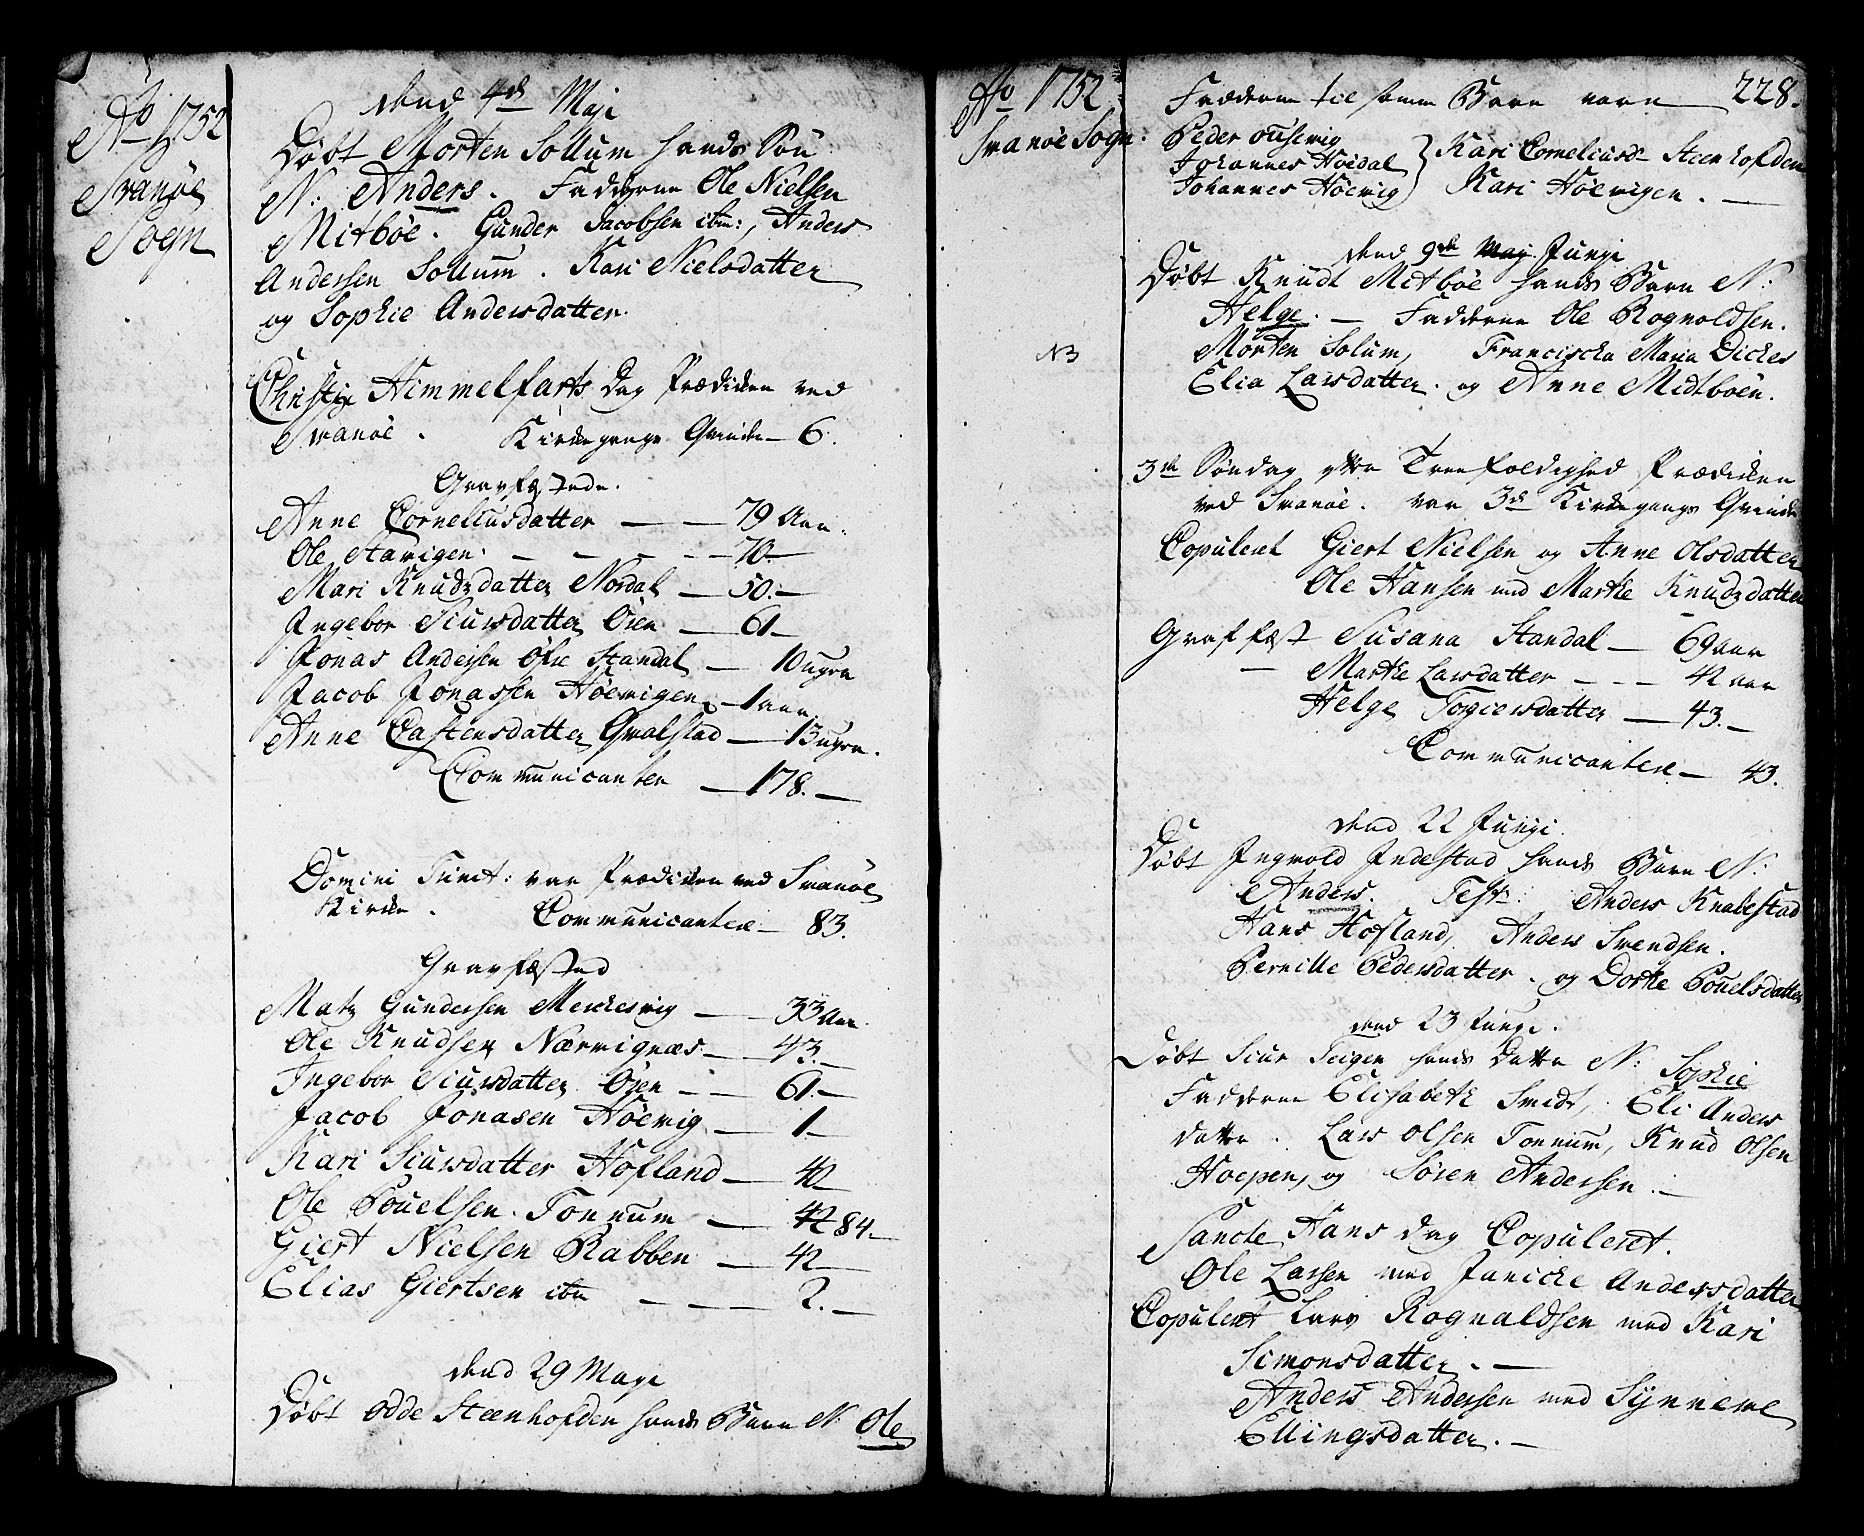 Ao 1752
Svanöe
Sogn
dend 4de Maji
Döbt Morten Sollum hands Sön
N: Anders. Fadderne Ole Nielsen
Mitböe. Gunder Jacobsen ibm:, Anders
Andersen Sollum. Kari Nielsdatter
og Sophie Andersdatter.
Christi Himmelfarts Dag Prædiken ved
Svanöe. Kirkegangs Qvinder 6.
Gravfæstede.
Anne Corneliusdatter — — 79 Aar.
Ole Stavigen. — — — — 70.—
Mari Knudzdatter Nordal — 50.—
Ingebor Siursdatter Öien — 61—
Jonas Andersen Öfre Standal — 10 ugre
Jacob Jonassen Höevigen — 1 aar
Anne Castensdatter Qvalstad — 13 ugre.
Communicanter — 178.—
Domini Trinit: var Prædiken ved Svanöe
Kirke. Communicantere — 83.
Gravfæsted
Matz Gundersen Merkesvig — 33 Aar
Ole Knudsen Nærvignæs — 43.—
Ingebor Siursdatter Öien — — 61.—
Jacob Jonasen Höevig — 1.—
Kari Siursdatter Hofland — 42
Ole Pouelsen Tonnum — 42 84.—
Giert Nielsen Rabben — 42
Elias Giertsen ibm — — — 2.—
dend 29 Maye
Döbt Odde Steenhofden hands Barn N: Ole
Ao 1752
Svanöe Sogn:
228.
Fadderne til samme Barn vare
Peder
Johannes Höidal
Johannes Höevig
Kari Corneliusd: Steenhofden
Kari Höevigen. —
dend 9de Maji Junji
Döbt Knudt Mitböe hands Barn N:
Helge. — Fadderne Ole Rognoldsen.
NB
Morten Solum, Francischa Maria Dickes
Elia Larsdatter. og Anne Midtböen.
3de Söndag efter Treefoldighed Prædiken
ved Svanöe. var 3de Kirkegangs Qvinder
Copuleret Giert Nielsen og Anne Olsdatter
Ole Hansen med Marthe Knudzdatter
Graffæst Susana Standal — 69 aar
— Marthe Larsdatter — — — 42 aar
Helge Torgiersdatter — 43.—
Communicantere — 43.
dend 22 Junji.
Döbt Ingvold Indestad hands Barn N:
Anders. Test: Anders Knabestad
Hans Hofland, Anders Svendsen.
Pernille Pedersdatter. og Dorthe Pouelsdatter
dend 23 Junji.
Döbt Siur Teigen hands Datter N: Sophie
Fadderne Elisabeth Smidt, Eli Anders
datter. Lars Olsen Tonnum, Knud Olsen
Hoepen, og Sören Andersen. —
Sancte Hans Dag Copuleret.
Ole Larsen med Janicke Andersdatter
Copuleret Lars Rognaldsen med Kari
Simonsdatter. —
Anders Andersen med Synneve
Ellingsdatter. —